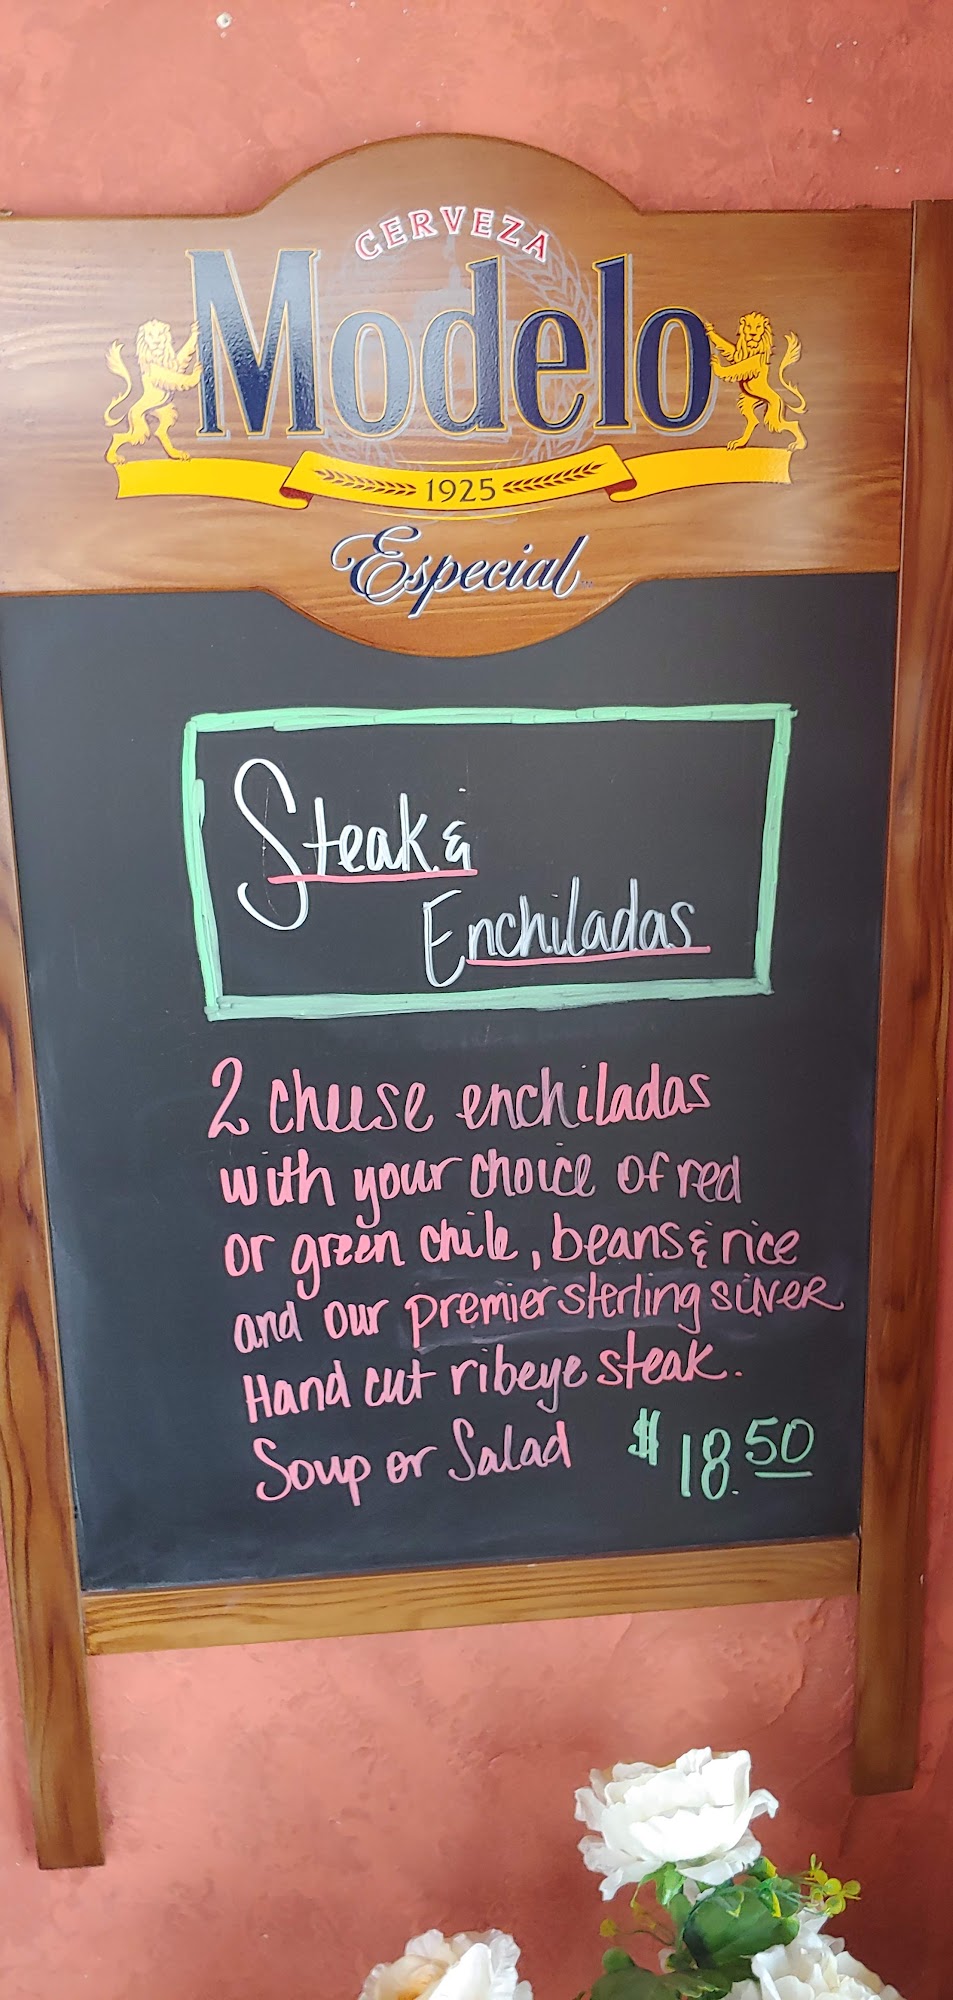 CERVEZA
Modelo
1925
Especial
Steak &
Enchiladas
2 cheese enchiladas
with your choice of red
or green chile, beans & rice
and our premier sterling silver
Hand cut ribeye steak.
Soup or Salad $18.50